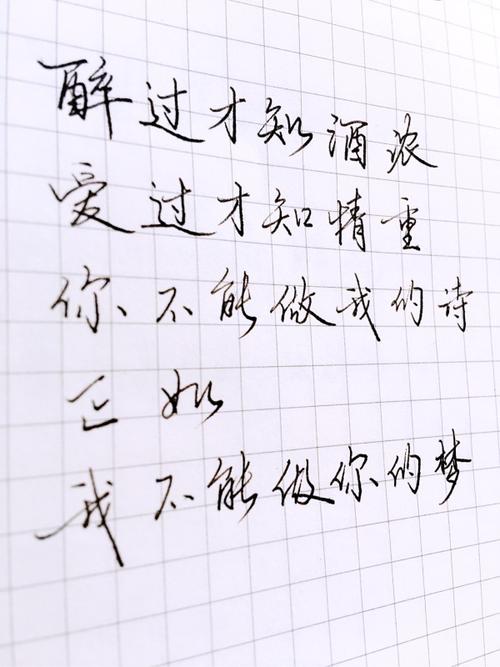 醉过才知酒浓
爱过才知情重
你不能做我的诗
正如
我不能做你的梦